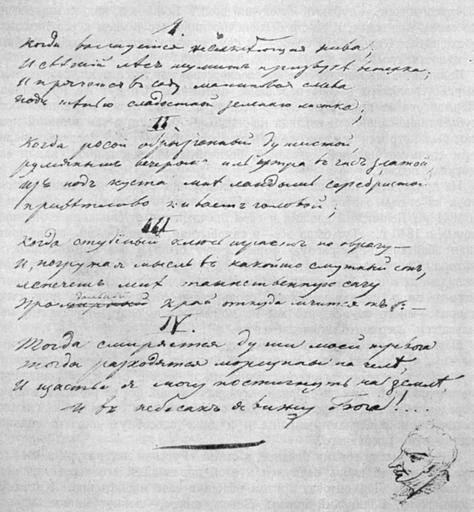 I.
Когда волнуется желтѣющая нива,
И свѣжiй лѣсъ шумитъ при звукѣ вѣтерка;
И прячется въ саду малиновая слива
подъ тѣнью сладостной зеленаго листка;
II.
Когда росой обрызганный душистой,
румянымъ вечеромъ иль утра въ часъ златой,
Изъ подъ куста мнѣ ландышъ серебристой
привѣтливо киваетъ головой;
III
Когда студёный ключъ играетъ по оврагу—
И, погружая мысль въ какойто смутный сонъ,
лепечетъ мнѣ таинственную сагу
дальный
про мирный край откуда мчится онъ:—
IV.
Тогда смиряется души моей тревога
тогда расходятся морщины на челѣ,
И щастье я могу постигнуть на землѣ,
И въ небесахъ я вижу Бога!....